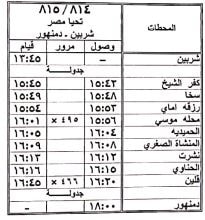 ٨١٥/٨١٤
تحيا مصر
شربين ـ دمنهور
المحطات وصول مرور قيام
شربين – ١٣:٤٥
جدولة
كفر الشيخ ١٥:٤٣ ١٥:٤٥
سخا ١٥:٤٨ ١٥:٤٩
رزقه اماي ١٥:٥٣ ١٥:٥٤
محله موسي ١٥:٥٦ ٤٩٥ × ١٦:٠١
الحميديه ١٦:٠٤ ١٦:٠٥
المنشاة الصغري ١٦:٠٨ ١٦:٠٩
نشرت ١٦:١٢ ١٦:١٣
الحناوي ١٦:١٥ ١٦:١٦
قلين ١٦:٢٠ ٤٦٦ × ١٦:٤٥
جدولة
دمنهور ١٨:٠٠